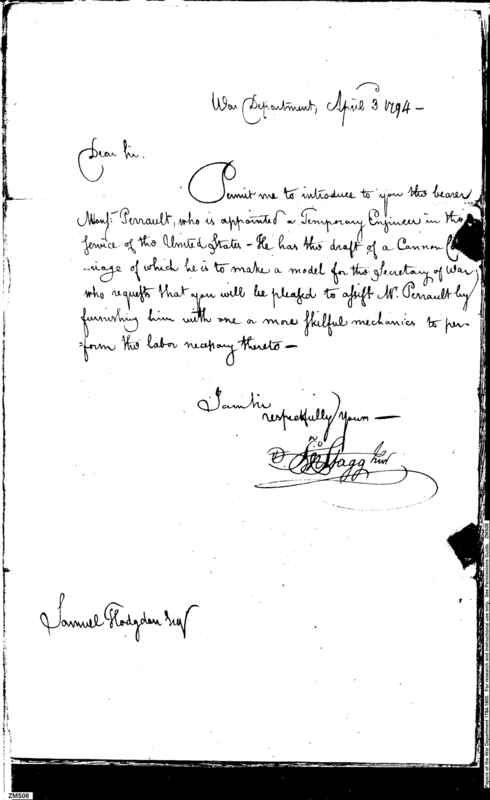 War Department, April 3 1794 –
Dear Sir.
Permit me to introduce to you the bearer
Monsr. Perrault, who is appointed a Temporary Engineer in the
service of the United States – He has the draft of a Cannon Ca
=riage of which he is to make a model for the Secretary of War
who requests that you will be pleased to assist Mr. Perrault by
furnishing him with one or more skilful mechanics to per=
=form the labor necessary thereto –
I am Sir
respectfully Yours –
Jno Stagg Junr
Samuel Hodgdon Esqr
ZMS06